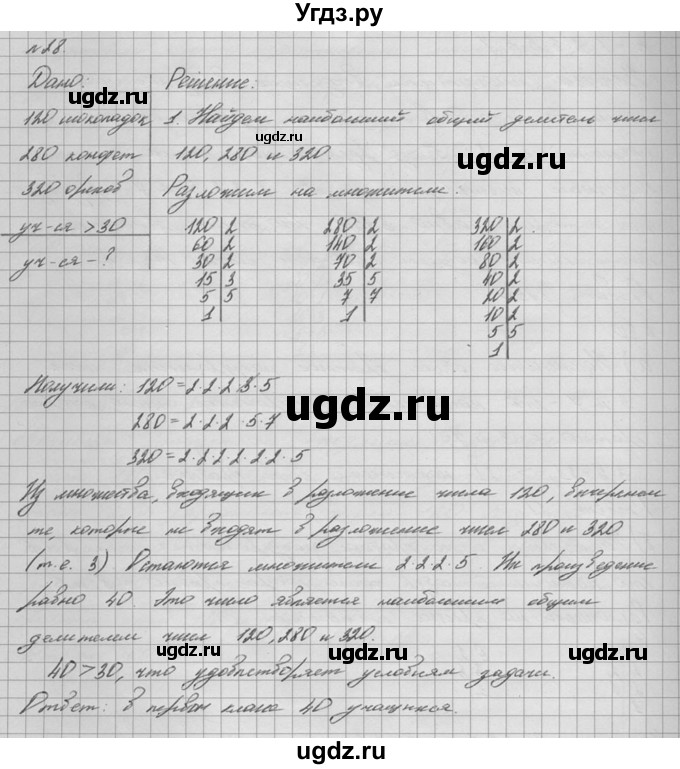 Угдз.ру
№28.
Дано: Решение:
ugdz.ru
120 шоколадок 1. Найдем наибольший общий делитель чисел
ugdz.ru
280 конфет 120, 280 и 320.
ugdz.ru
320 орехов Разложим на множители:
уч-ся >30 120|2 280|2 320|2
уч-ся - ? 60|2 140|2 160|2
30|2 70|2 80|2
15|3 35|5 40|2
5|5 7|7 20|2
1| 1| 10|2
5|5
1|
Получили: 120=2·2·2·3·5
ugdz.ru
280=2·2·2·5·7
320=2·2·2·2·2·2·5
Из множества, входящих в разложение числа 120, вычеркнем
те, которые не входят в разложение чисел 280 и 320
(т.е. 3) Остаются множители 2·2·2·5. Их произведение
равно 40. Это число является наибольшим общим
делителем чисел 120, 280 и 320.
ugdz.ru
40>30, что удовлетворяет условиям задачи.
ugdz.ru
Ответ: в первом классе 40 учащихся.
ugdz.ru